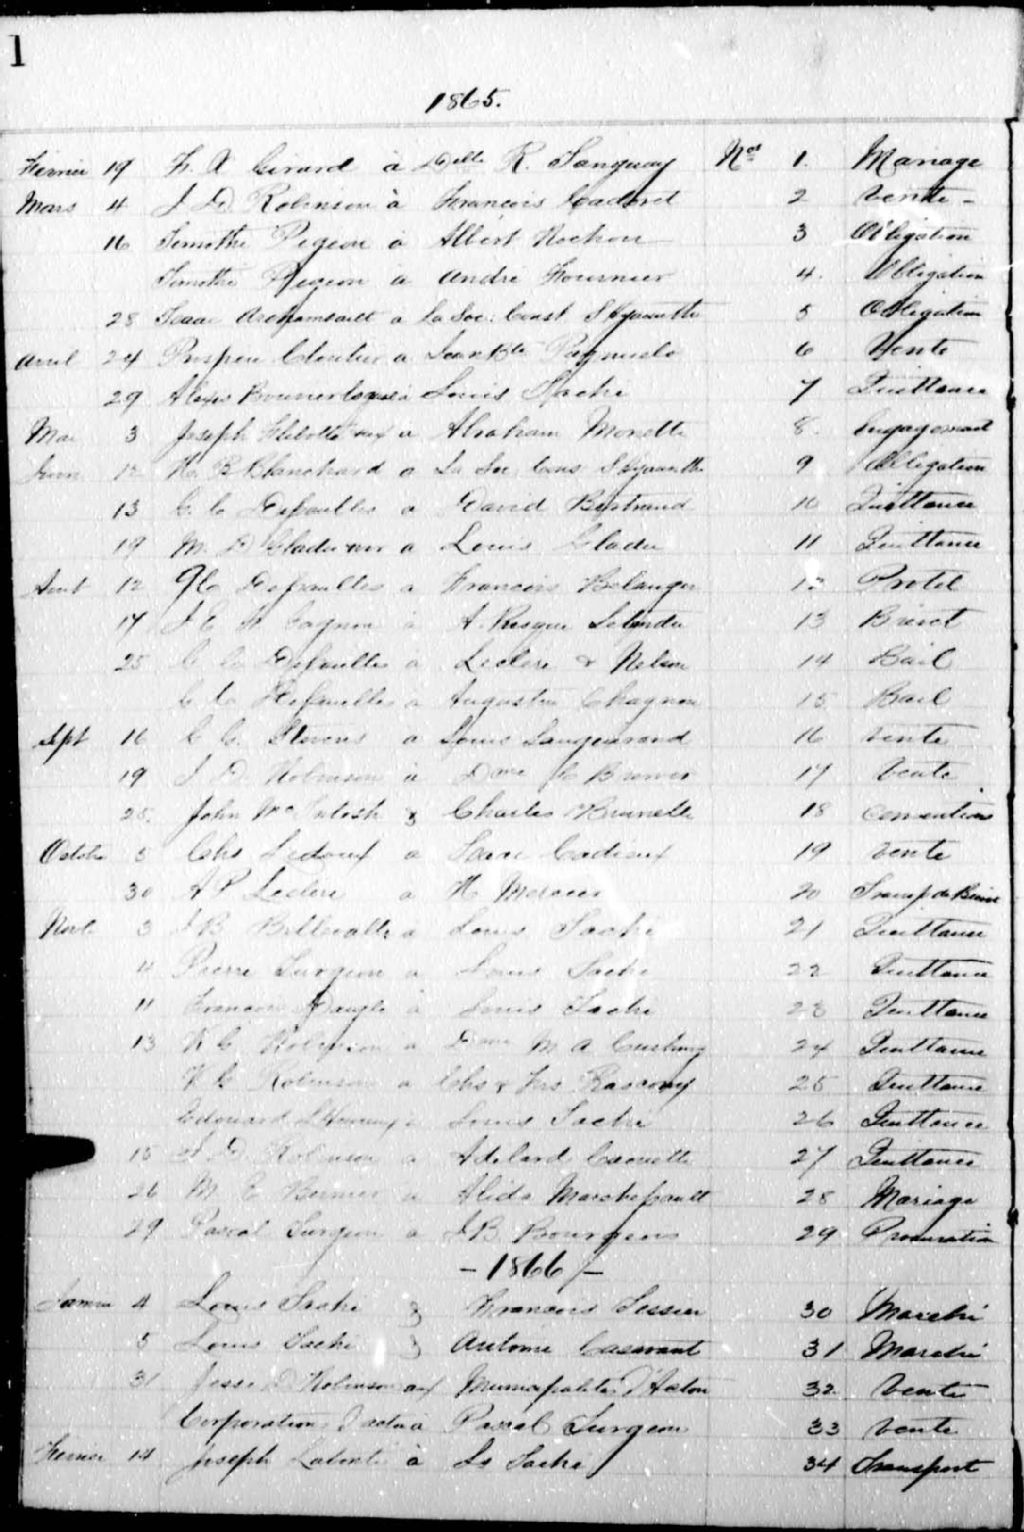 1
1865.
Février 19 F. A Girard à Delle R. Tanguay Nos 1. Mariage
Mars 4 J D. Robinson à François Cadoret 2 Vente -
16 Timothé Pigeon à Albert Rochon 3 Obligation
Timothé Pigeon à André Fournier 4. Obligation
28 Isaac Archambault a La Soc. Const. St Hyacinthe 5 Obligation
Avril 24 Cloutier a Jean Bte Pagnuelo 6 Vente
29 Alexis à Louis Taché 7 Quittance
Mai 3 Joseph ux a Abraham Monette 8. Engagement
Juin 12 B Blanchard a La Soc Cons St Hyacinthe 9 Obligation
13 C. C. Defauilles a David Bertrand 10 Quittance
19 M. D Gladu a Louis Gladu 11 Quittance
Aout 12 Defauilles a François Belanger 12 Protet
17 Gagnon à 13 Brevet
25 C Co Defauilles a Leclere & Nelson 14 Bail
C. C. Defauilles a Augustin Chagnon 15 Bail
Sept 16 C. C. Stevens a Louis Langevand 16 Vente
19 J. D. Robinson à Dme 17 Vente
25. John Mc Intosh & Charles Brunelle 18 Conventions
Octobr 5 Chs Ledoux a Isaac Cadieux 19 Vente
30 A P. Leclere a H Mercier 20 Transp de Baux
Nov. 3 J B. à Louis Taché 21 Quittance
4 Pierre Turgeon a Louis Taché 22 Quittance
11 François Daigle à Louis Taché 23 Quittance
13 Robinson a Dame M A Cushing 24 Quittance
Robinson a Chs & Frs Rascony 25 Quittance
Edouard à Louis Taché 26 Quittance
15 J. D. Robinson a Adelard Caouette 27 Quittance
26 M. E Bernier a Alida Marchessault 28 Mariage
29 Pascal Turgeon a J. B. Bourgeois 29 Procuration
- 1866 -
Janvier 4 Louis Taché & François Tessier 30 Marché
5 Louis Taché & Antoine Casavant 31 Marché
31 Jesse D Robinson aux Municipalité d'Acton 32. Vente
Corporation d'Acton a Pascal Turgeon 33 Vente
Fevrier 14 Joseph à Ls Taché 34 Transport